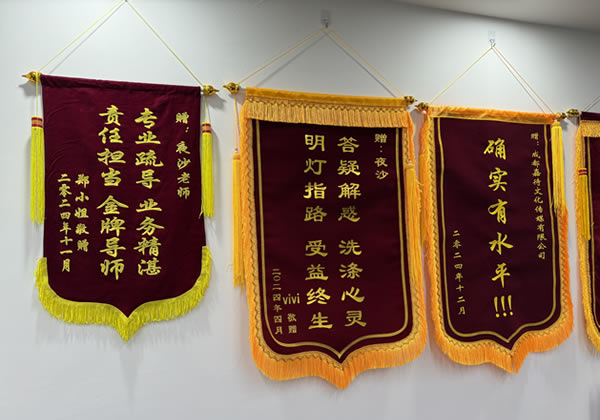 赠：夜沙老师
专业疏导 业务精湛
责任担当 金牌导师
郑小姐敬赠
二零二四年十一月
赠：夜沙
答疑解惑 洗涤心灵
明灯指路 受益终生
vivi 敬赠
二〇二四年四月
赠：成都嘉待文化传媒有限公司
确实有水平!!!
二零二四年十二月